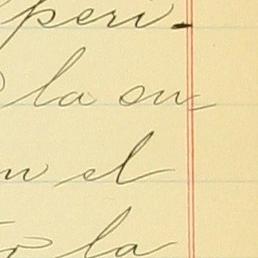 peri-
la su
el
la